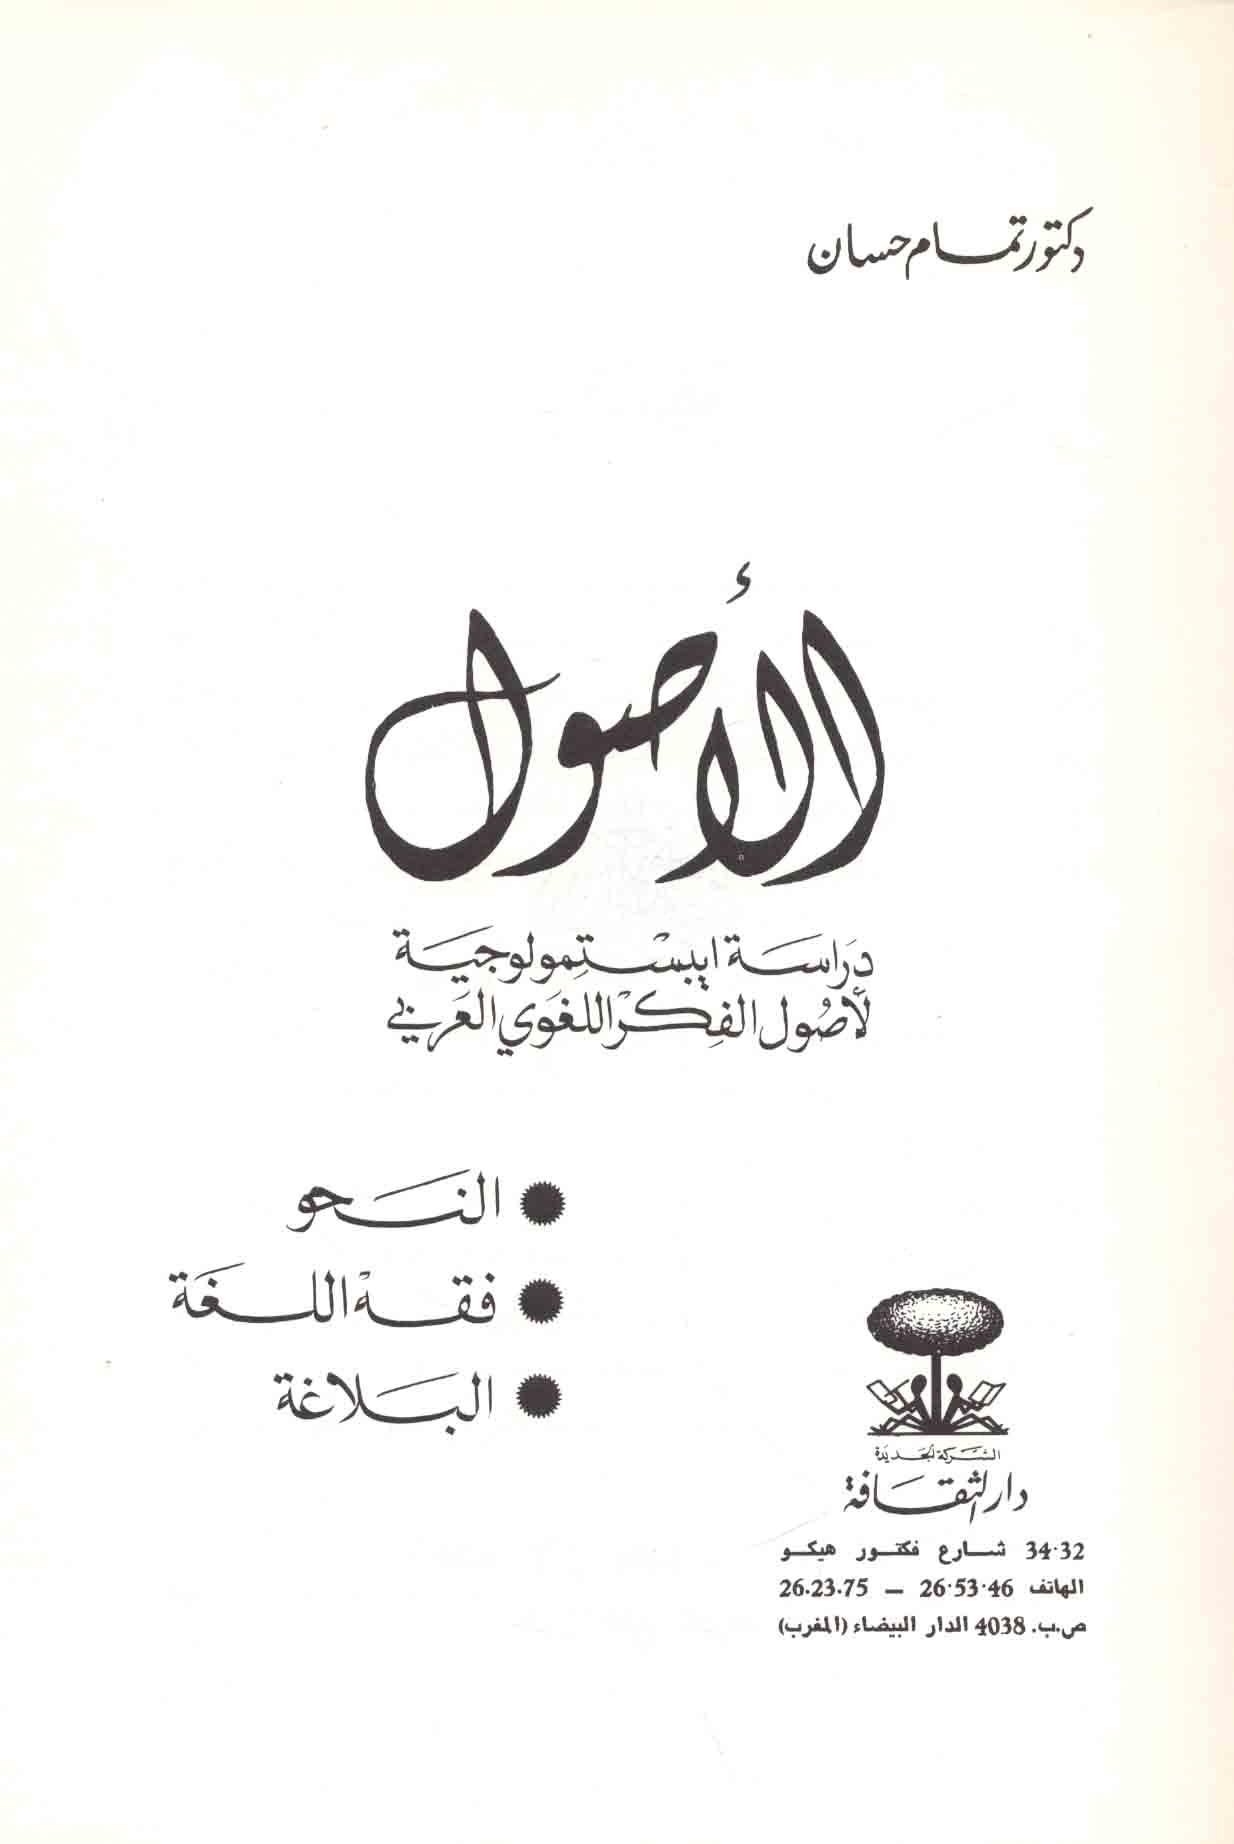 دكتور تمام حسان
الأصول
دراسة ايبستمولوجية
لأصول الفكر اللغوي العربي
النحو
فقه اللغة
البلاغة
الشركة الجديدة
دار الثقافة
34·32 شارع فكتور هيكو
الهاتف 26·53·46 – 26.23.75
ص.ب. 4038 الدار البيضاء (المغرب)